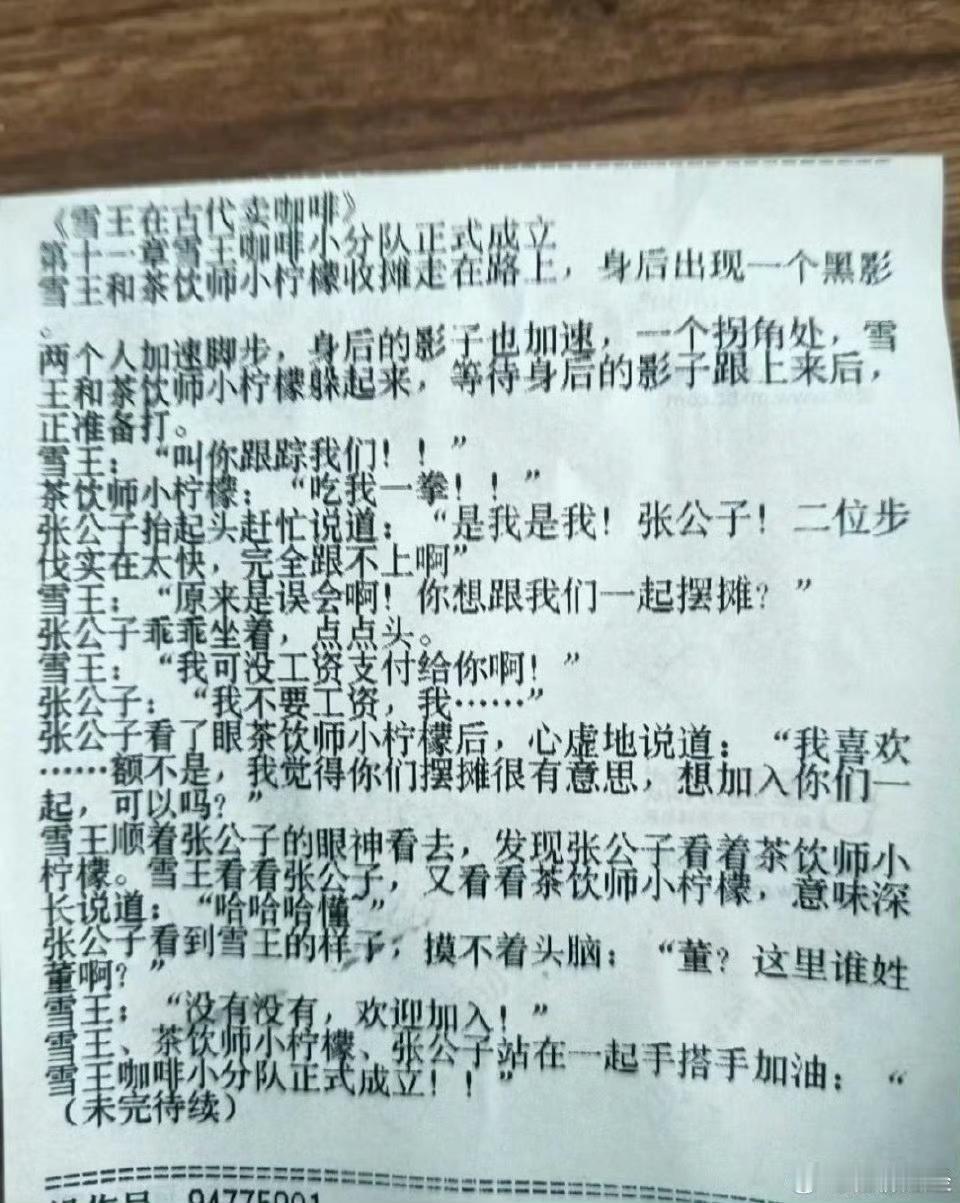 《雪王在古代卖咖啡》
第十一章雪王咖啡小分队正式成立
雪王和茶饮师小柠檬收摊走在路上，身后出现一个黑影
。
两个人加速脚步，身后的影子也加速，一个拐角处，雪
王和茶饮师小柠檬躲起来，等待身后的影子跟上来后，
正准备打。
雪王：“叫你跟踪我们！！”
茶饮师小柠檬：“吃我一拳！！”
张公子抬起头赶忙说道：“是我是我！张公子！二位步
伐实在太快，完全跟不上啊”
雪王：“原来是误会啊！你想跟我们一起摆摊？”
张公子乖乖坐着，点点头。
雪王：“我可没工资支付给你啊！”
张公子：“我不要工资，我……”
张公子看了眼茶饮师小柠檬后，心虚地说道：“我喜欢
……额不是，我觉得你们摆摊很有意思，想加入你们一
起，可以吗？”
雪王顺着张公子的眼神看去，发现张公子看着茶饮师小
柠檬。雪王看看张公子，又看看茶饮师小柠檬，意味深
长说道：“哈哈哈懂”
张公子看到雪王的样子，摸不着头脑：“董？这里谁姓
董啊？”
雪王：“没有没有，欢迎加入！”
雪王、茶饮师小柠檬、张公子站在一起手搭手加油：“
雪王咖啡小分队正式成立！！”
（未完待续）